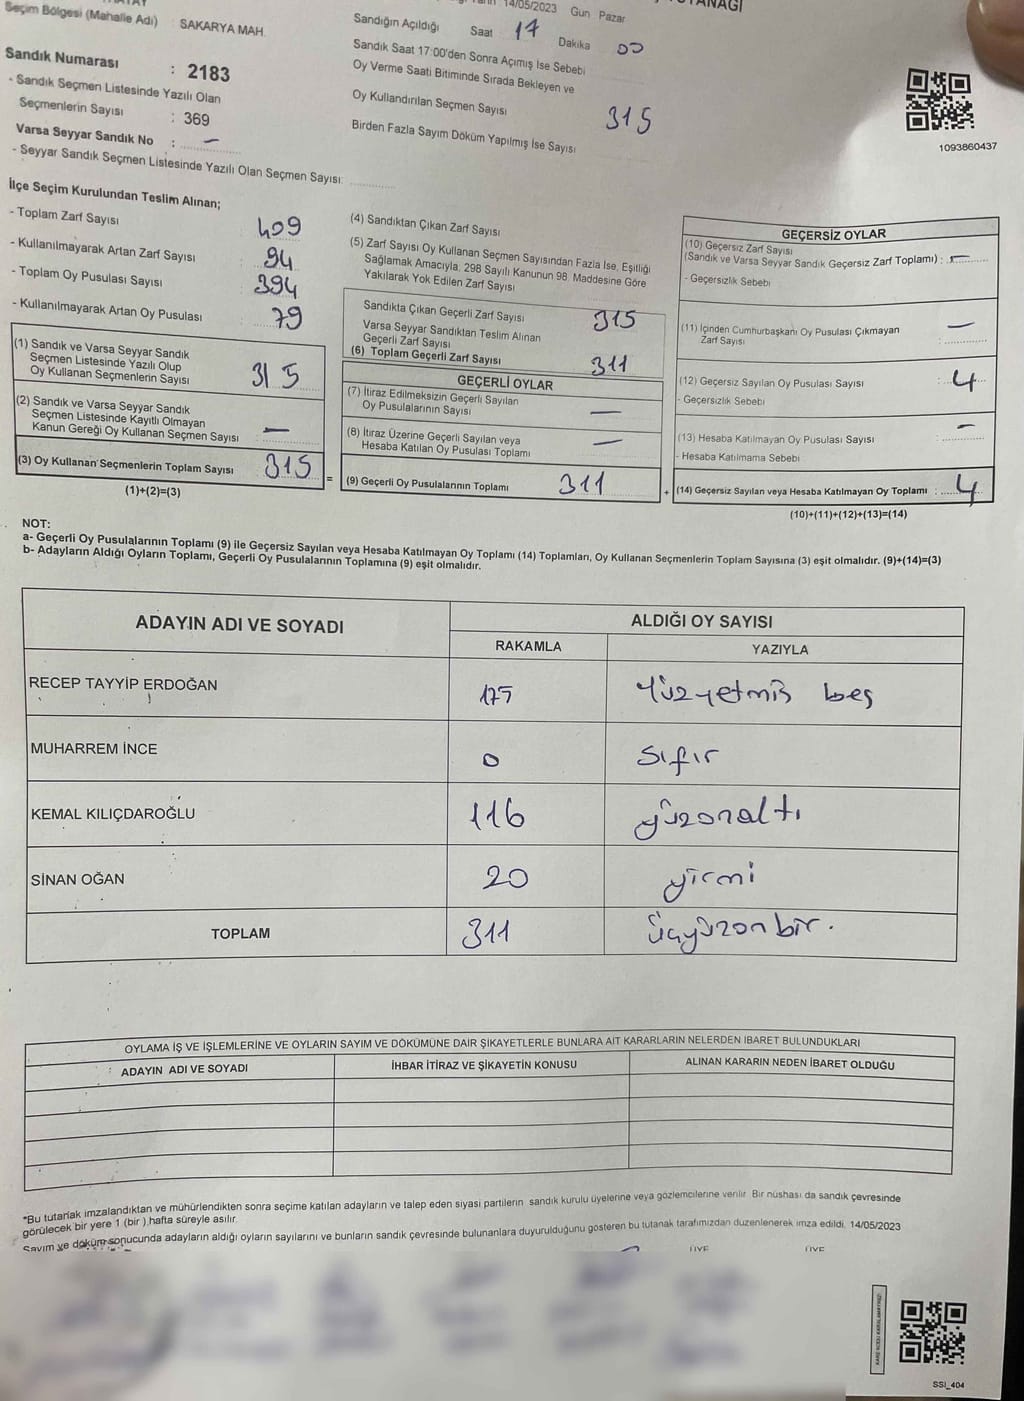 TUTANAĞI
14/05/2023 Gün Pazar
Seçim Bölgesi (Mahalle Adı) : SAKARYA MAH.
Sandık Numarası : 2183
- Sandık Seçmen Listesinde Yazılı Olan
Seçmenlerin Sayısı : 369
Varsa Seyyar Sandık No : —
- Seyyar Sandık Seçmen Listesinde Yazılı Olan Seçmen Sayısı:
Sandığın Açıldığı Saat 17 Dakika 00
Sandık Saat 17:00'den Sonra Açımış İse Sebebi
Oy Verme Saati Bitiminde Sırada Bekleyen ve
Oy Kullandırılan Seçmen Sayısı 315
Birden Fazla Sayım Döküm Yapılmış İse Sayısı
1093860437
İlçe Seçim Kurulundan Teslim Alınan;
- Toplam Zarf Sayısı 409
- Kullanılmayarak Artan Zarf Sayısı 94
- Toplam Oy Pusulası Sayısı 394
- Kullanılmayarak Artan Oy Pusulası 79
(1) Sandık ve Varsa Seyyar Sandık
Seçmen Listesinde Yazılı Olup
Oy Kullanan Seçmenlerin Sayısı 315
(2) Sandık ve Varsa Seyyar Sandık
Seçmen Listesinde Kayıtlı Olmayan
Kanun Gereği Oy Kullanan Seçmen Sayısı : —
(3) Oy Kullanan Seçmenlerin Toplam Sayısı 315
(1)+(2)=(3)
(4) Sandıktan Çıkan Zarf Sayısı
(5) Zarf Sayısı Oy Kullanan Seçmen Sayısından Fazla İse, Eşitliği
Sağlamak Amacıyla, 298 Sayılı Kanunun 98. Maddesine Göre
Yakılarak Yok Edilen Zarf Sayısı
Sandıkta Çıkan Geçerli Zarf Sayısı 315
Varsa Seyyar Sandıktan Teslim Alınan
Geçerli Zarf Sayısı
(6) Toplam Geçerli Zarf Sayısı 311
GEÇERLİ OYLAR
(7) İtiraz Edilmeksizin Geçerli Sayılan
Oy Pusulalarının Sayısı —
(8) İtiraz Üzerine Geçerli Sayılan veya
Hesaba Katılan Oy Pusulası Toplamı —
= (9) Geçerli Oy Pusulalarının Toplamı 311
GEÇERSİZ OYLAR
(10) Geçersiz Zarf Sayısı
(Sandık ve Varsa Seyyar Sandık Geçersiz Zarf Toplamı) : —
- Geçersizlik Sebebi
(11) İçinden Cumhurbaşkanı Oy Pusulası Çıkmayan
Zarf Sayısı : —
(12) Geçersiz Sayılan Oy Pusulası Sayısı : 4
- Geçersizlik Sebebi
(13) Hesaba Katılmayan Oy Pusulası Sayısı : —
- Hesaba Katılmama Sebebi
+ (14) Geçersiz Sayılan veya Hesaba Katılmayan Oy Toplamı : 4
(10)+(11)+(12)+(13)=(14)
NOT:
a- Geçerli Oy Pusulalarının Toplamı (9) ile Geçersiz Sayılan veya Hesaba Katılmayan Oy Toplamı (14) Toplamları, Oy Kullanan Seçmenlerin Toplam Sayısına (3) eşit olmalıdır. (9)+(14)=(3)
b- Adayların Aldığı Oyların Toplamı, Geçerli Oy Pusulalarının Toplamına (9) eşit olmalıdır.
ADAYIN ADI VE SOYADI
ALDIĞI OY SAYISI
RAKAMLA YAZIYLA
RECEP TAYYİP ERDOĞAN 175 Yüzyetmiş beş
MUHARREM İNCE 0 Sıfır
KEMAL KILIÇDAROĞLU 116 yüzonaltı
SİNAN OĞAN 20 yirmi
TOPLAM 311 üçyüzonbir.
OYLAMA İŞ VE İŞLEMLERİNE VE OYLARIN SAYIM VE DÖKÜMÜNE DAİR ŞİKAYETLERLE BUNLARA AİT KARARLARIN NELERDEN İBARET BULUNDUKLARI
ADAYIN ADI VE SOYADI İHBAR İTİRAZ VE ŞİKAYETİN KONUSU ALINAN KARARIN NEDEN İBARET OLDUĞU
*Bu tutanak imzalandıktan ve mühürlendikten sonra seçime katılan adayların ve talep eden siyasi partilerin sandık kurulu üyelerine veya gözlemcilerine verilir. Bir nüshası da sandık çevresinde
görülecek bir yere 1 (bir ) hafta süreyle asılır.
Sayım ve döküm sonucunda adayların aldığı oyların sayılarını ve bunların sandık çevresinde bulunanlara duyurulduğunu gösteren bu tutanak tarafımızdan düzenlenerek imza edildi. 14/05/2023
ÜYE ÜYE
KARE KODU KARALAMAYINIZ!
SSI_404